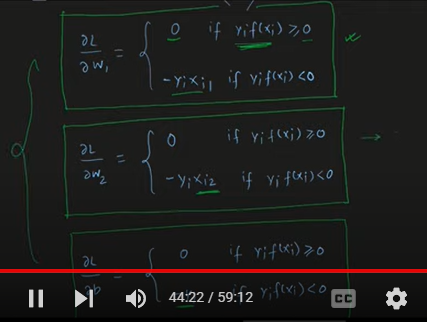 ∂L/∂w₁ = { 0 if yᵢf(xᵢ) ≥ 0
-yᵢxᵢ₁ if yᵢf(xᵢ) < 0
∂L/∂w₂ = { 0 if yᵢf(xᵢ) ≥ 0
-yᵢxᵢ₂ if yᵢf(xᵢ) < 0
∂L/∂b = { 0 if yᵢf(xᵢ) ≥ 0
if yᵢf(xᵢ) < 0
44:22 / 59:12
CC